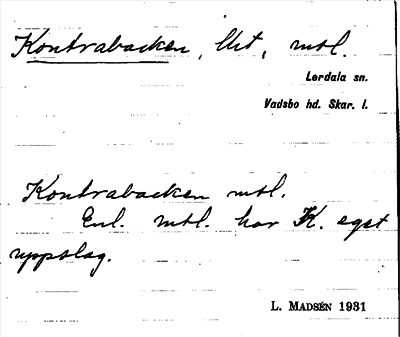 Kontrabacken, Ukt, mtl.
Lerdala sn.
Vadsbo hd. Skar. l.
Kontrabacken mtl.
Enl. mtl. har K. eget
uppslag.
L. MADSÉN 1931